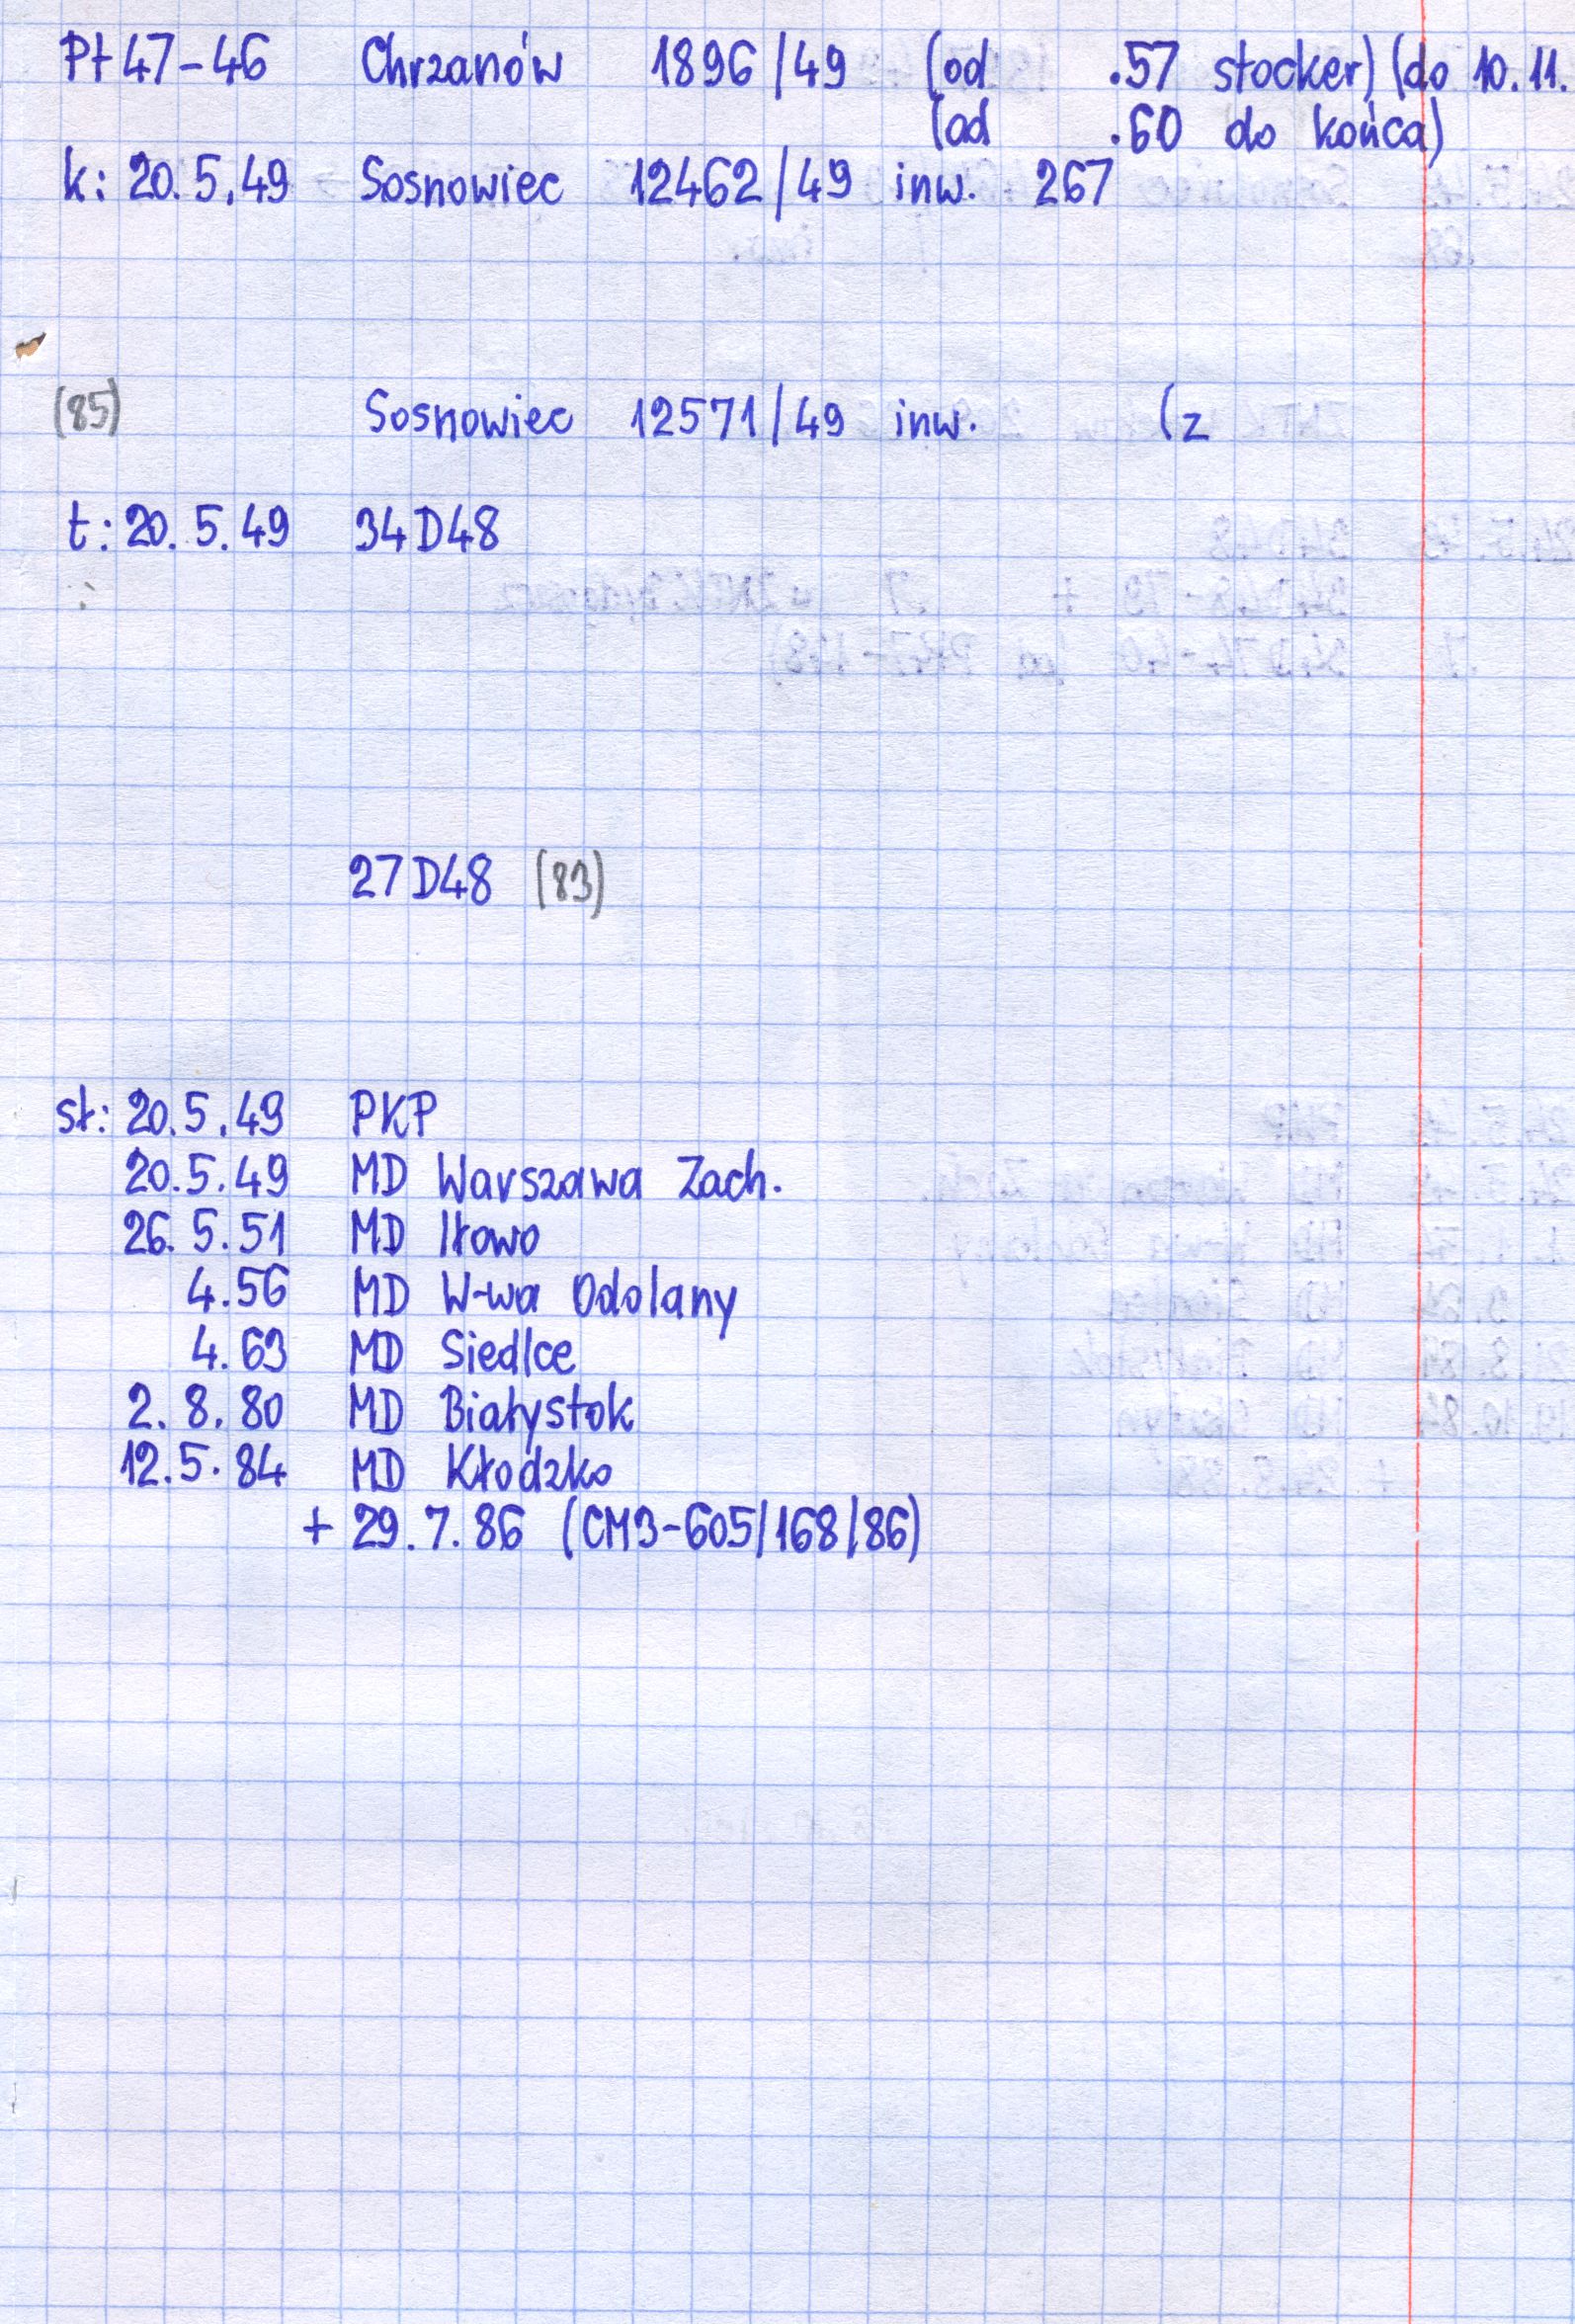 Pt47-46 Chrzanów 1896/49 (od .57 stocker) (do 10.11.
(od .60 do końca)
k: 20.5.49 Sosnowiec 12462/49 inw. 267
(85) Sosnowiec 12571/49 inw. (z
t: 20.5.49 34D48
27D48 (83)
st: 20.5.49 PKP
20.5.49 MD Warszawa Zach.
26.5.51 MD Iłowo
4.56 MD W-wa Odolany
4.63 MD Siedlce
2.8.80 MD Białystok
12.5.84 MD Kłodzko
+ 29.7.86 (CM3-605/168/86)